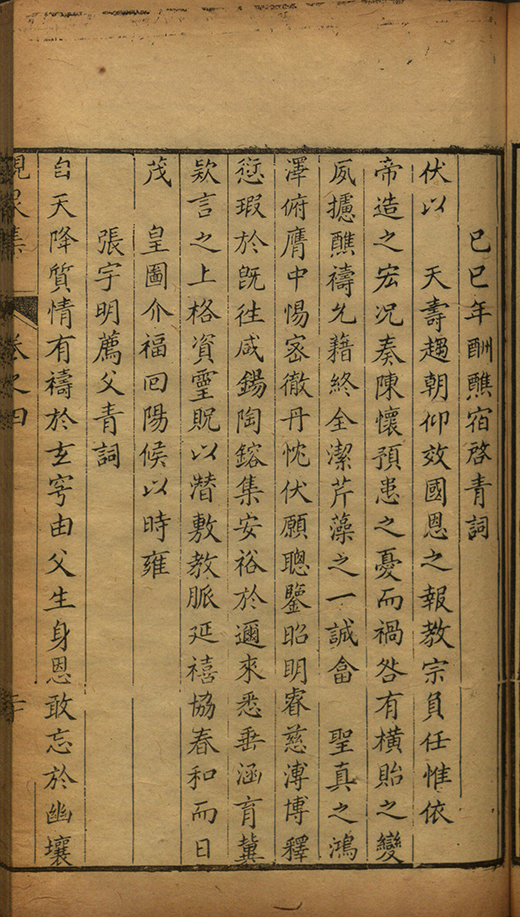 己巳年酬醮宿啓青詞
伏以　天壽趨朝仰效國恩之報教宗負任惟依
帝造之宏况奏陳懷預患之憂而禍咎有橫貽之變
夙攄醮禱允藉終全潔芹藻之一誠龠　聖真之鴻
澤俯膺中惕宻徹丹忱伏願聰鑒昭明睿慈溥博釋
愆瑕於旣徃咸錫陶鎔集安裕於邇來悉垂涵育冀
欵言之上格資靈貺以潛敷教脈延禧協春和而日
茂　皇圖介福回陽候以時雍
張宇明薦父青詞
自天降質情有禱於玄穹由父生身恩敢忘於幽壤
峴泉集　卷之四